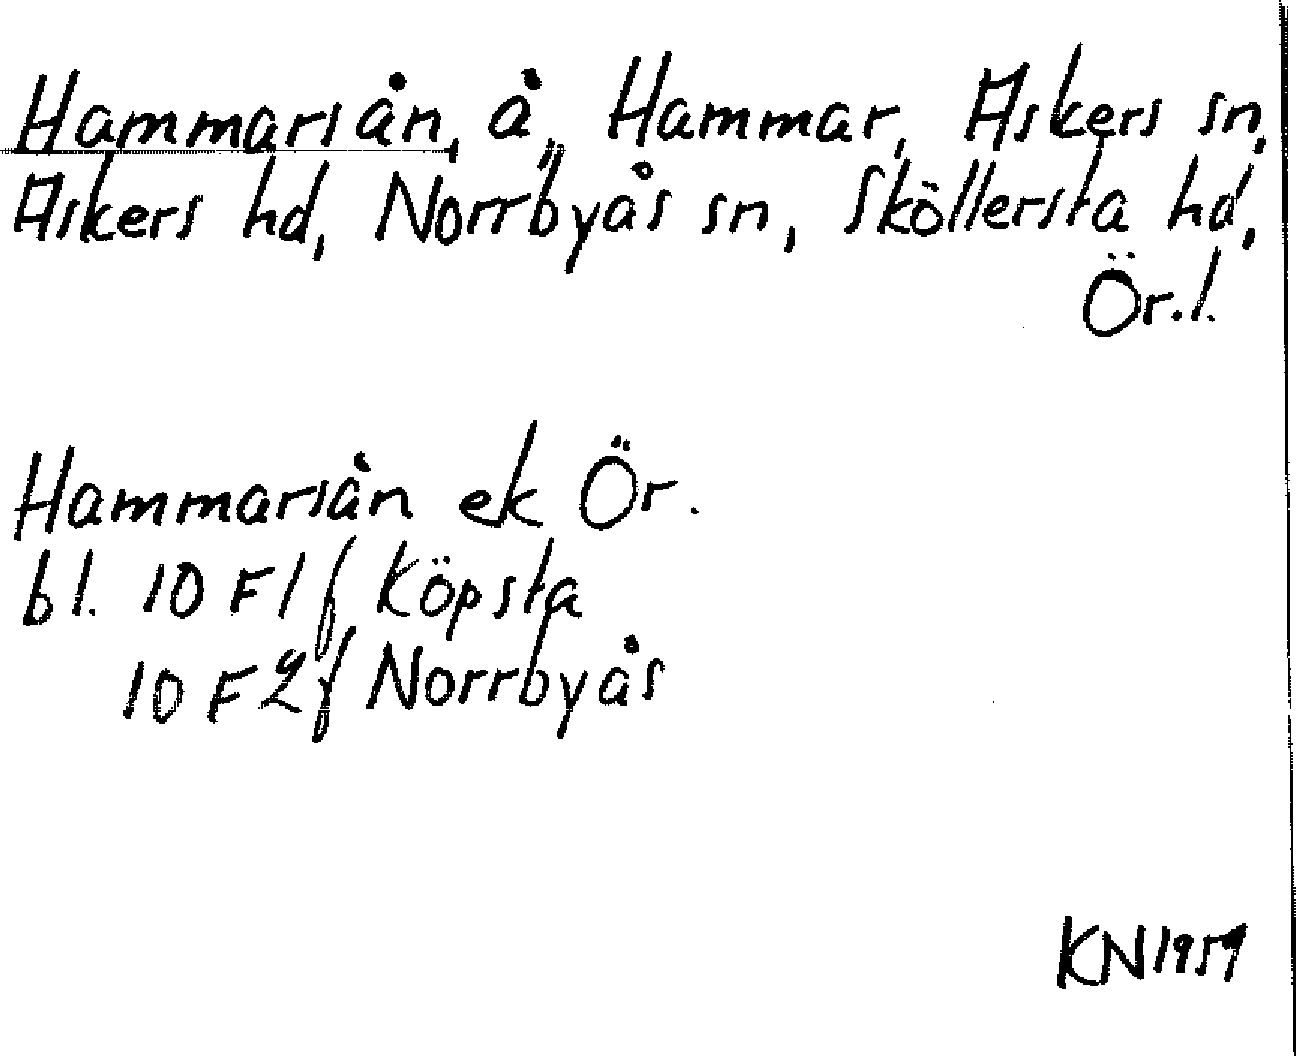 Hammarsån, å, Hammar, Askers sn,
Askers hd, Norrbyås sn, Sköllersta hd,
Ör. l.
Hammarsån ek Ör.
bl. 10 F1f Köpsta
10 F2f Norrbyås
KN 1959